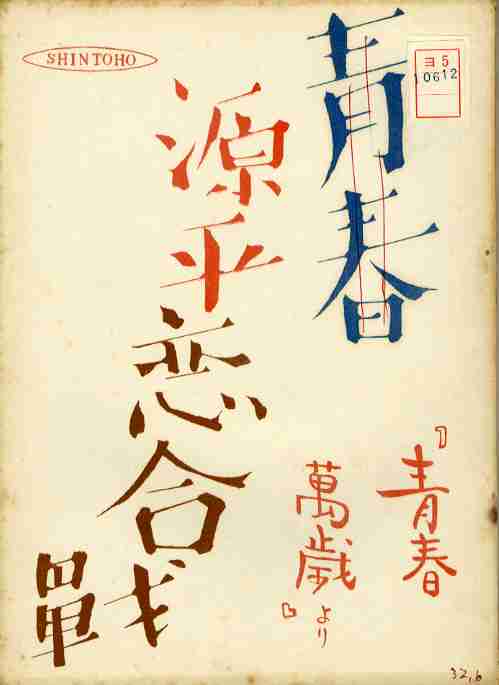 SHINTOHO
ヨ5
10612
青春
源平恋合戰
『青春
萬歳』より
32,6